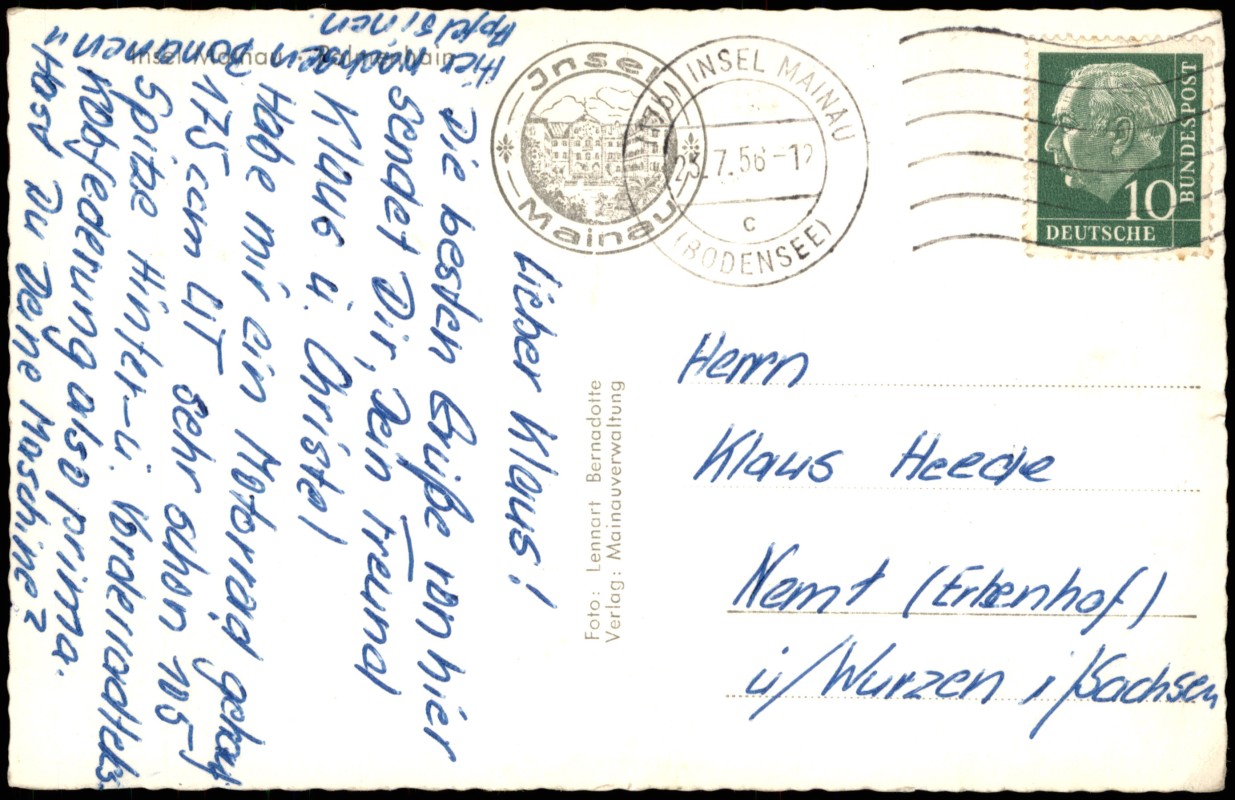 Insel Mainau · Palmenhain
Lieber Klaus!
Die besten Grüße von hier
sendet Dir, Dein Freund
Klaus u. Christel
Habe mir ein Motorrad gekauft
175 ccm LIT sehr schon 105-
Spitze Hinter-u. Vorderradteles
kopfederung also prima.
Hast Du Deine Maschine?
Hier wachsen Bananen u
Apfelsinen.
Insel
Mainau
INSEL MAINAU
23.7.56-12
c
(BODENSEE)
10
BUNDESPOST
DEUTSCHE
Foto: Lennart Bernadotte
Verlag: Mainauverwaltung
Herrn
Klaus Heede
Nemt (Erbenhof)
ü/Wurzen i/Sachsen